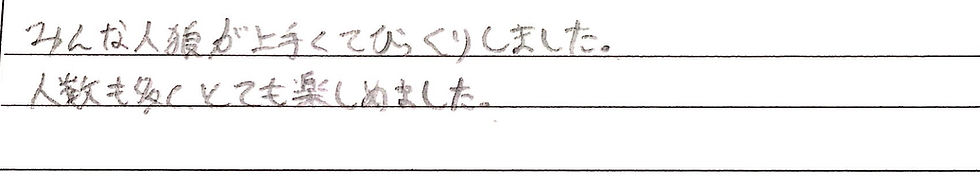 みんな人狼が上手くてびっくりしました。
人数も多くとても楽しめました。